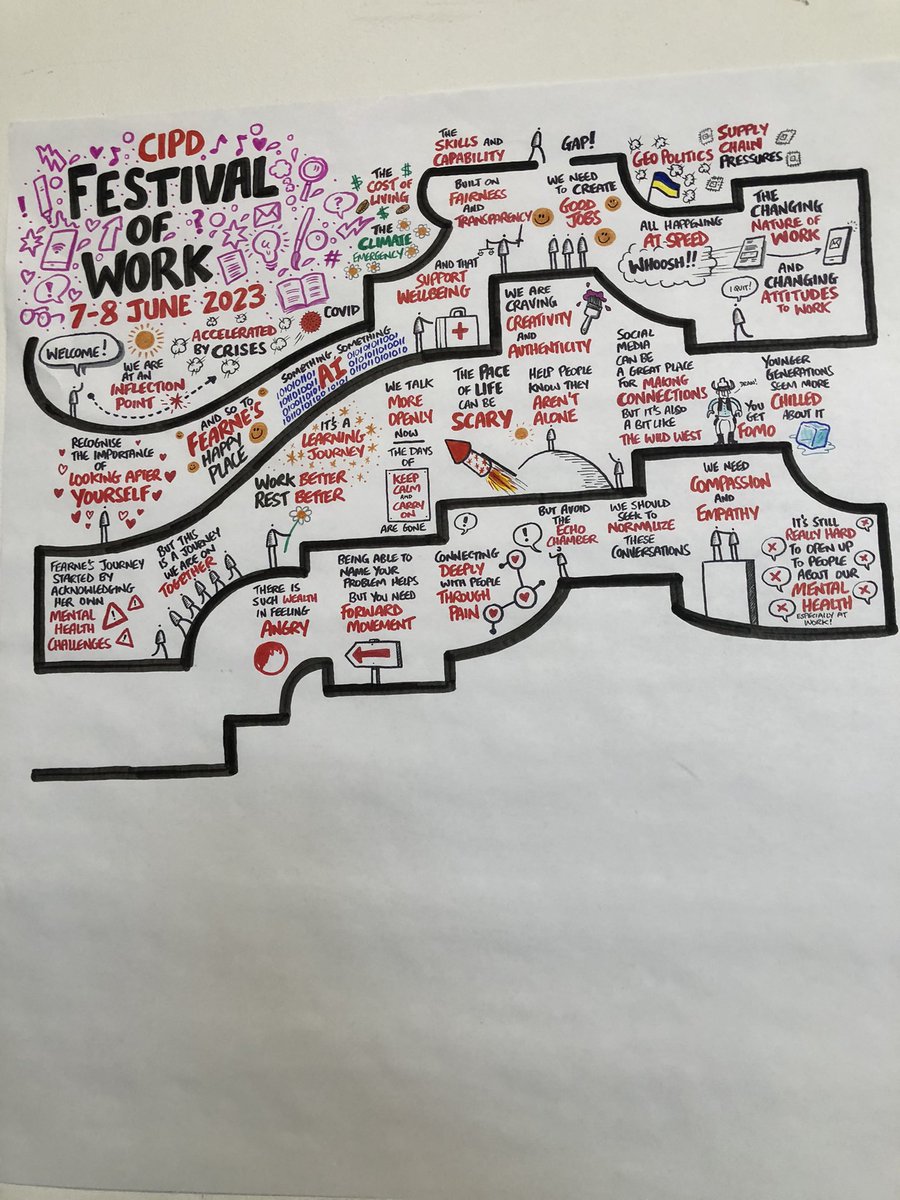 CIPD
FESTIVAL
OF
WORK
7-8 JUNE 2023
WELCOME!
WE ARE
AT AN
INFLECTION
POINT
ACCELERATED
BY CRISES
COVID
THE
COST OF
LIVING
THE
CLIMATE
EMERGENCY
THE
SKILLS AND
CAPABILITY
GAP!
GEO POLITICS
SUPPLY
CHAIN
PRESSURES
ALL HAPPENING
AT SPEED
WHOOSH!!
THE
CHANGING
NATURE OF
WORK
AND
CHANGING
ATTITUDES
TO WORK
I QUIT!
WE NEED
TO CREATE
GOOD
JOBS
BUILT ON
FAIRNESS
AND
TRANSPARENCY
AND THAT
SUPPORT
WELLBEING
SOMETHING SOMETHING
AI
AND SO TO
FEARNE'S
HAPPY
PLACE
RECOGNISE
THE IMPORTANCE
OF
LOOKING AFTER
YOURSELF
IT'S A
LEARNING
JOURNEY
WORK BETTER
REST BETTER
WE TALK
MORE
OPENLY
NOW
THE DAYS
OF
KEEP
CALM
AND
CARRY
ON
ARE GONE
THE PACE
OF LIFE
CAN BE
SCARY
WE ARE
CRAVING
CREATIVITY
AND
AUTHENTICITY
HELP PEOPLE
KNOW THEY
AREN'T
ALONE
SOCIAL
MEDIA
CAN BE
A GREAT PLACE
FOR MAKING
CONNECTIONS
BUT IT'S ALSO
A BIT LIKE
THE WILD WEST
YOU
GET
FOMO
YOUNGER
GENERATIONS
SEEM MORE
CHILLED
ABOUT IT
FEARNE'S JOURNEY
STARTED BY
ACKNOWLEDGING
HER OWN
MENTAL
HEALTH
CHALLENGES
BUT THIS
IS A JOURNEY
WE ARE ON
TOGETHER
THERE IS
SUCH WEALTH
IN FEELING
ANGRY
BEING ABLE TO
NAME YOUR
PROBLEM HELPS
BUT YOU NEED
FORWARD
MOVEMENT
CONNECTING
DEEPLY
WITH PEOPLE
THROUGH
PAIN
BUT AVOID
THE
ECHO
CHAMBER
WE SHOULD
SEEK TO
NORMALIZE
THESE
CONVERSATIONS
WE NEED
COMPASSION
AND
EMPATHY
IT'S STILL
REALLY HARD
TO OPEN UP
TO PEOPLE
ABOUT OUR
MENTAL
HEALTH
ESPECIALLY AT
WORK!